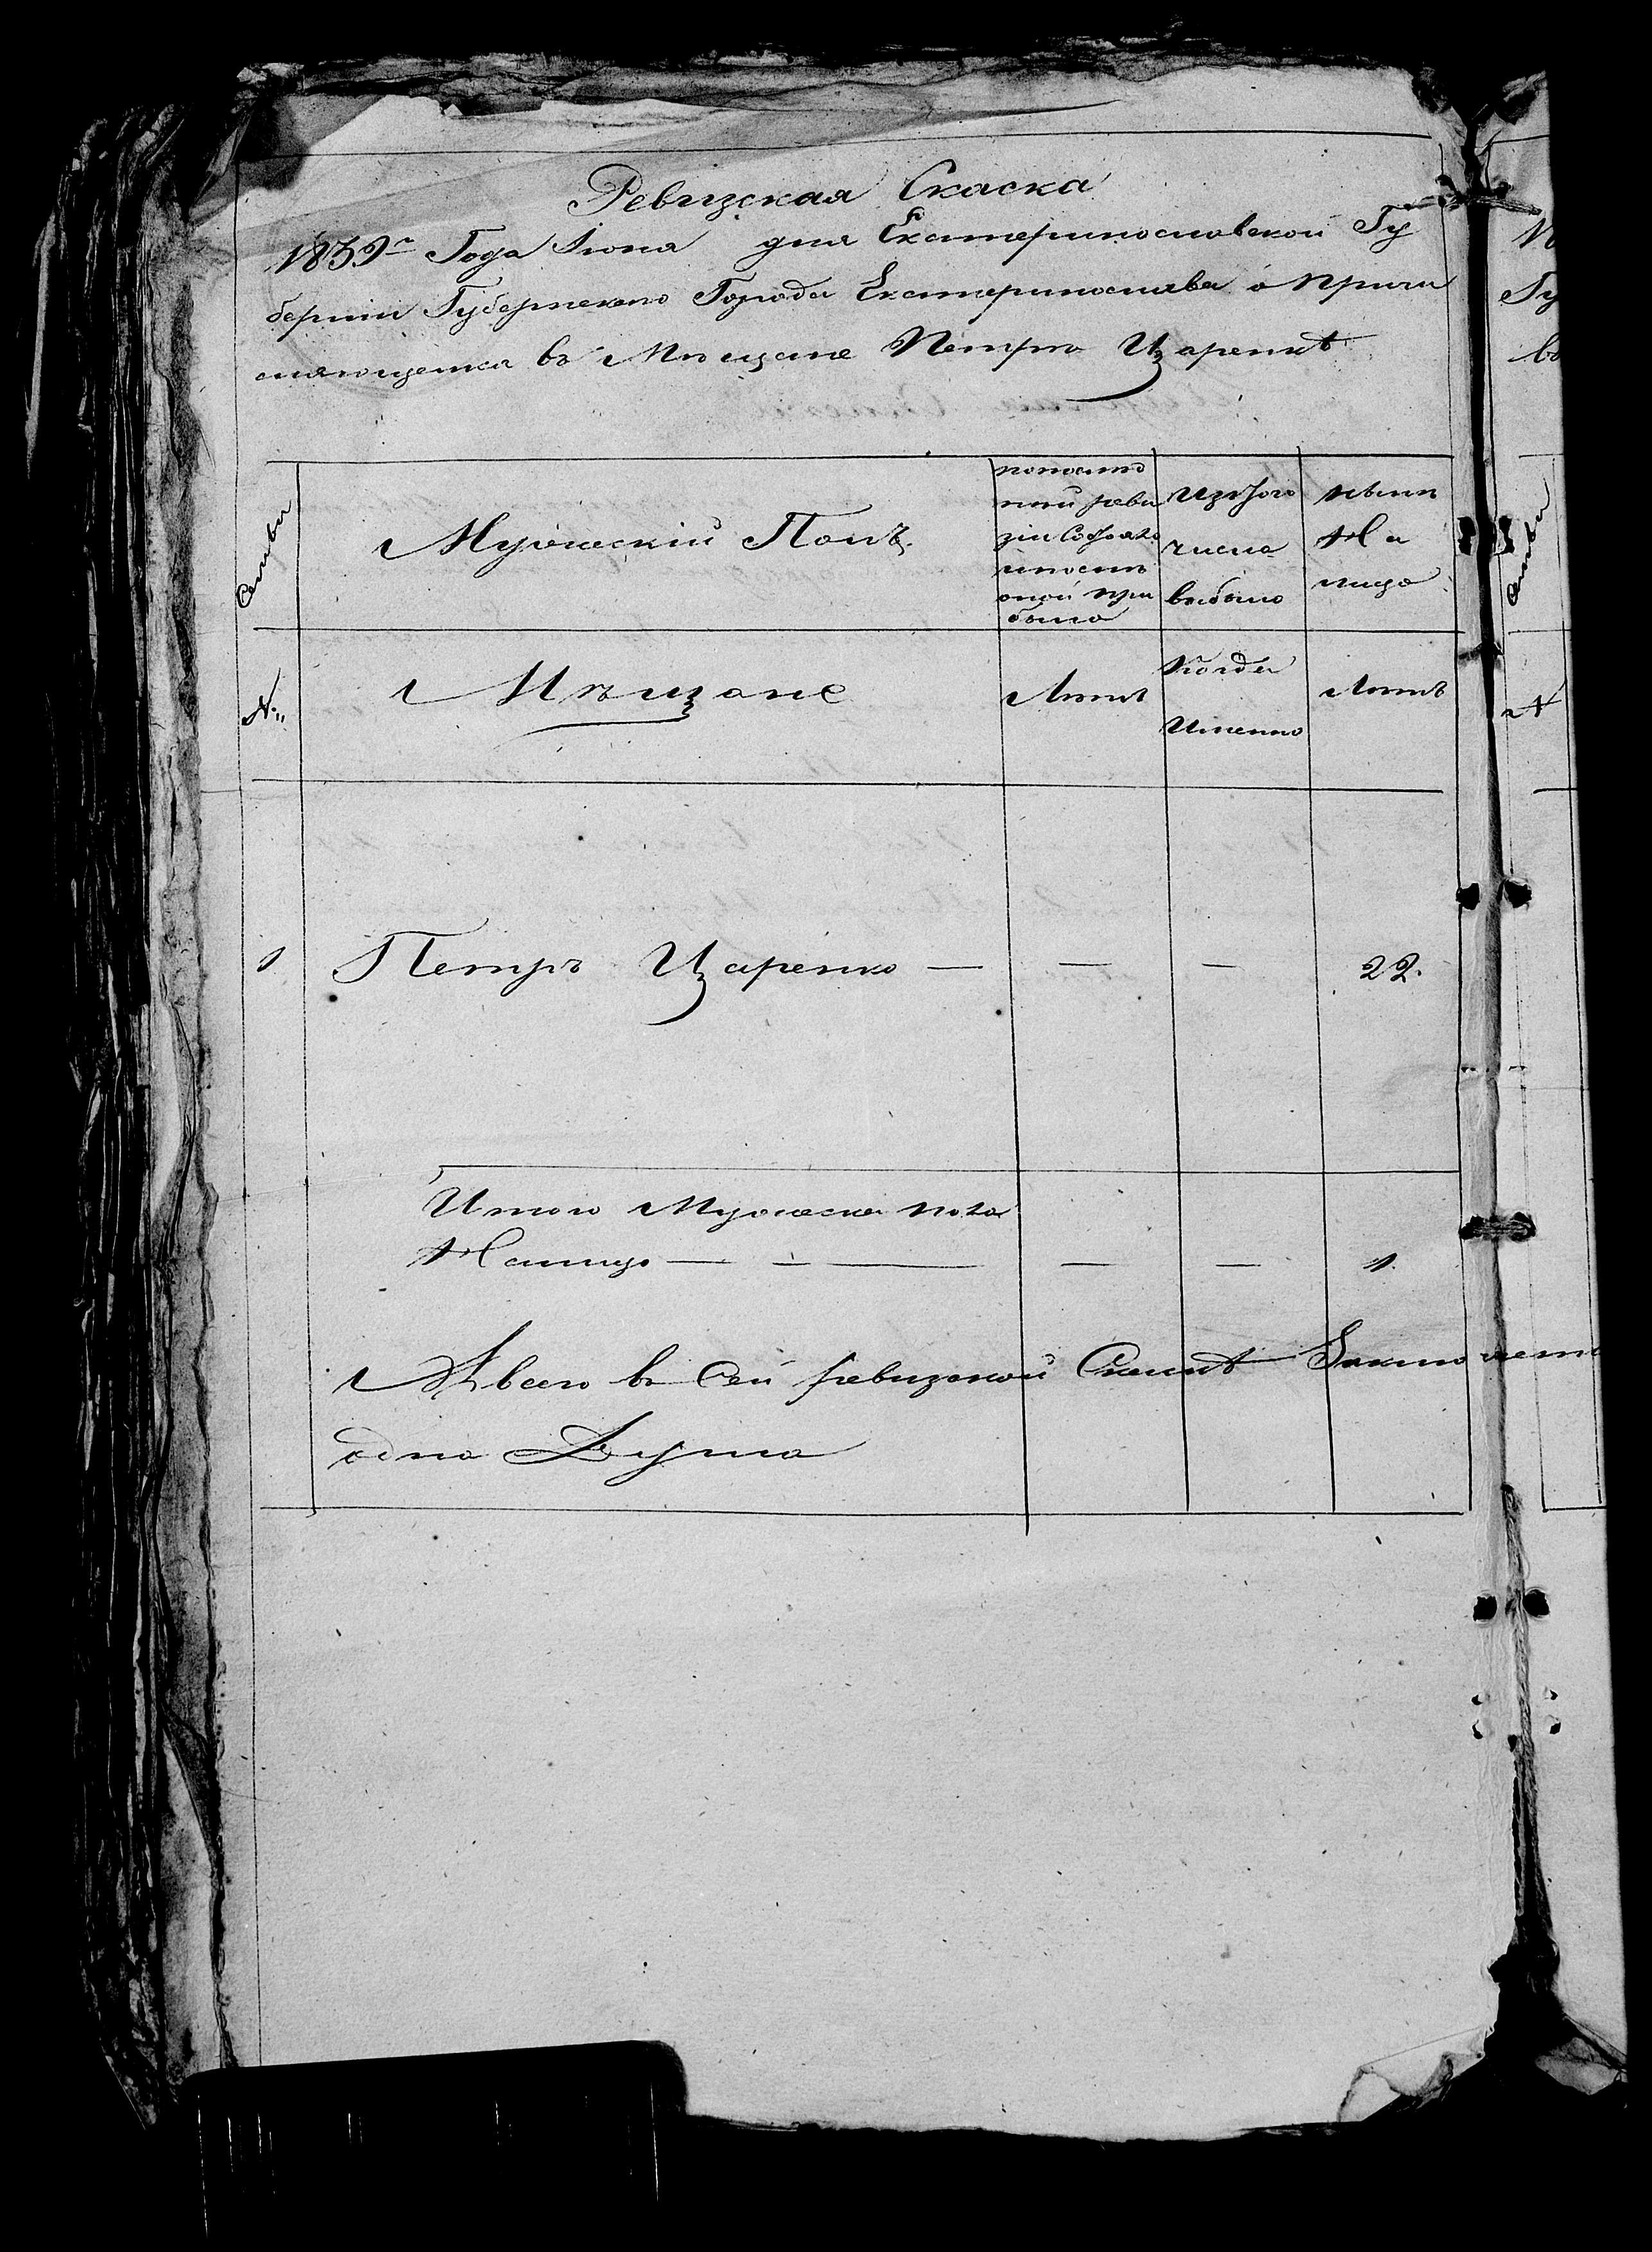 Ревизская Скаска
1839го Года Іюня дня Екатеринославской Гу
берніи Губернскаго Города Екатеринослава о причи
сляющемся въ Мѣщане Петрѣ Царенкѣ
Семьи
Мужескій Полъ.
по послѣд
ней реви
зіи состояло
и послѣ
оной при
было
Изъ того
числа
выбыло
нынѣ
На
лицо
№
Мѣщане
Лѣтъ
Когда
Именно
Лѣтъ
1 Петръ Царенко — — — 22.
Итого Мужеска пола
На лицо — — — — — 1.
А всего въ сей ревизской Скаскѣ Заключается
одна Душа
Гу
Семьи
№